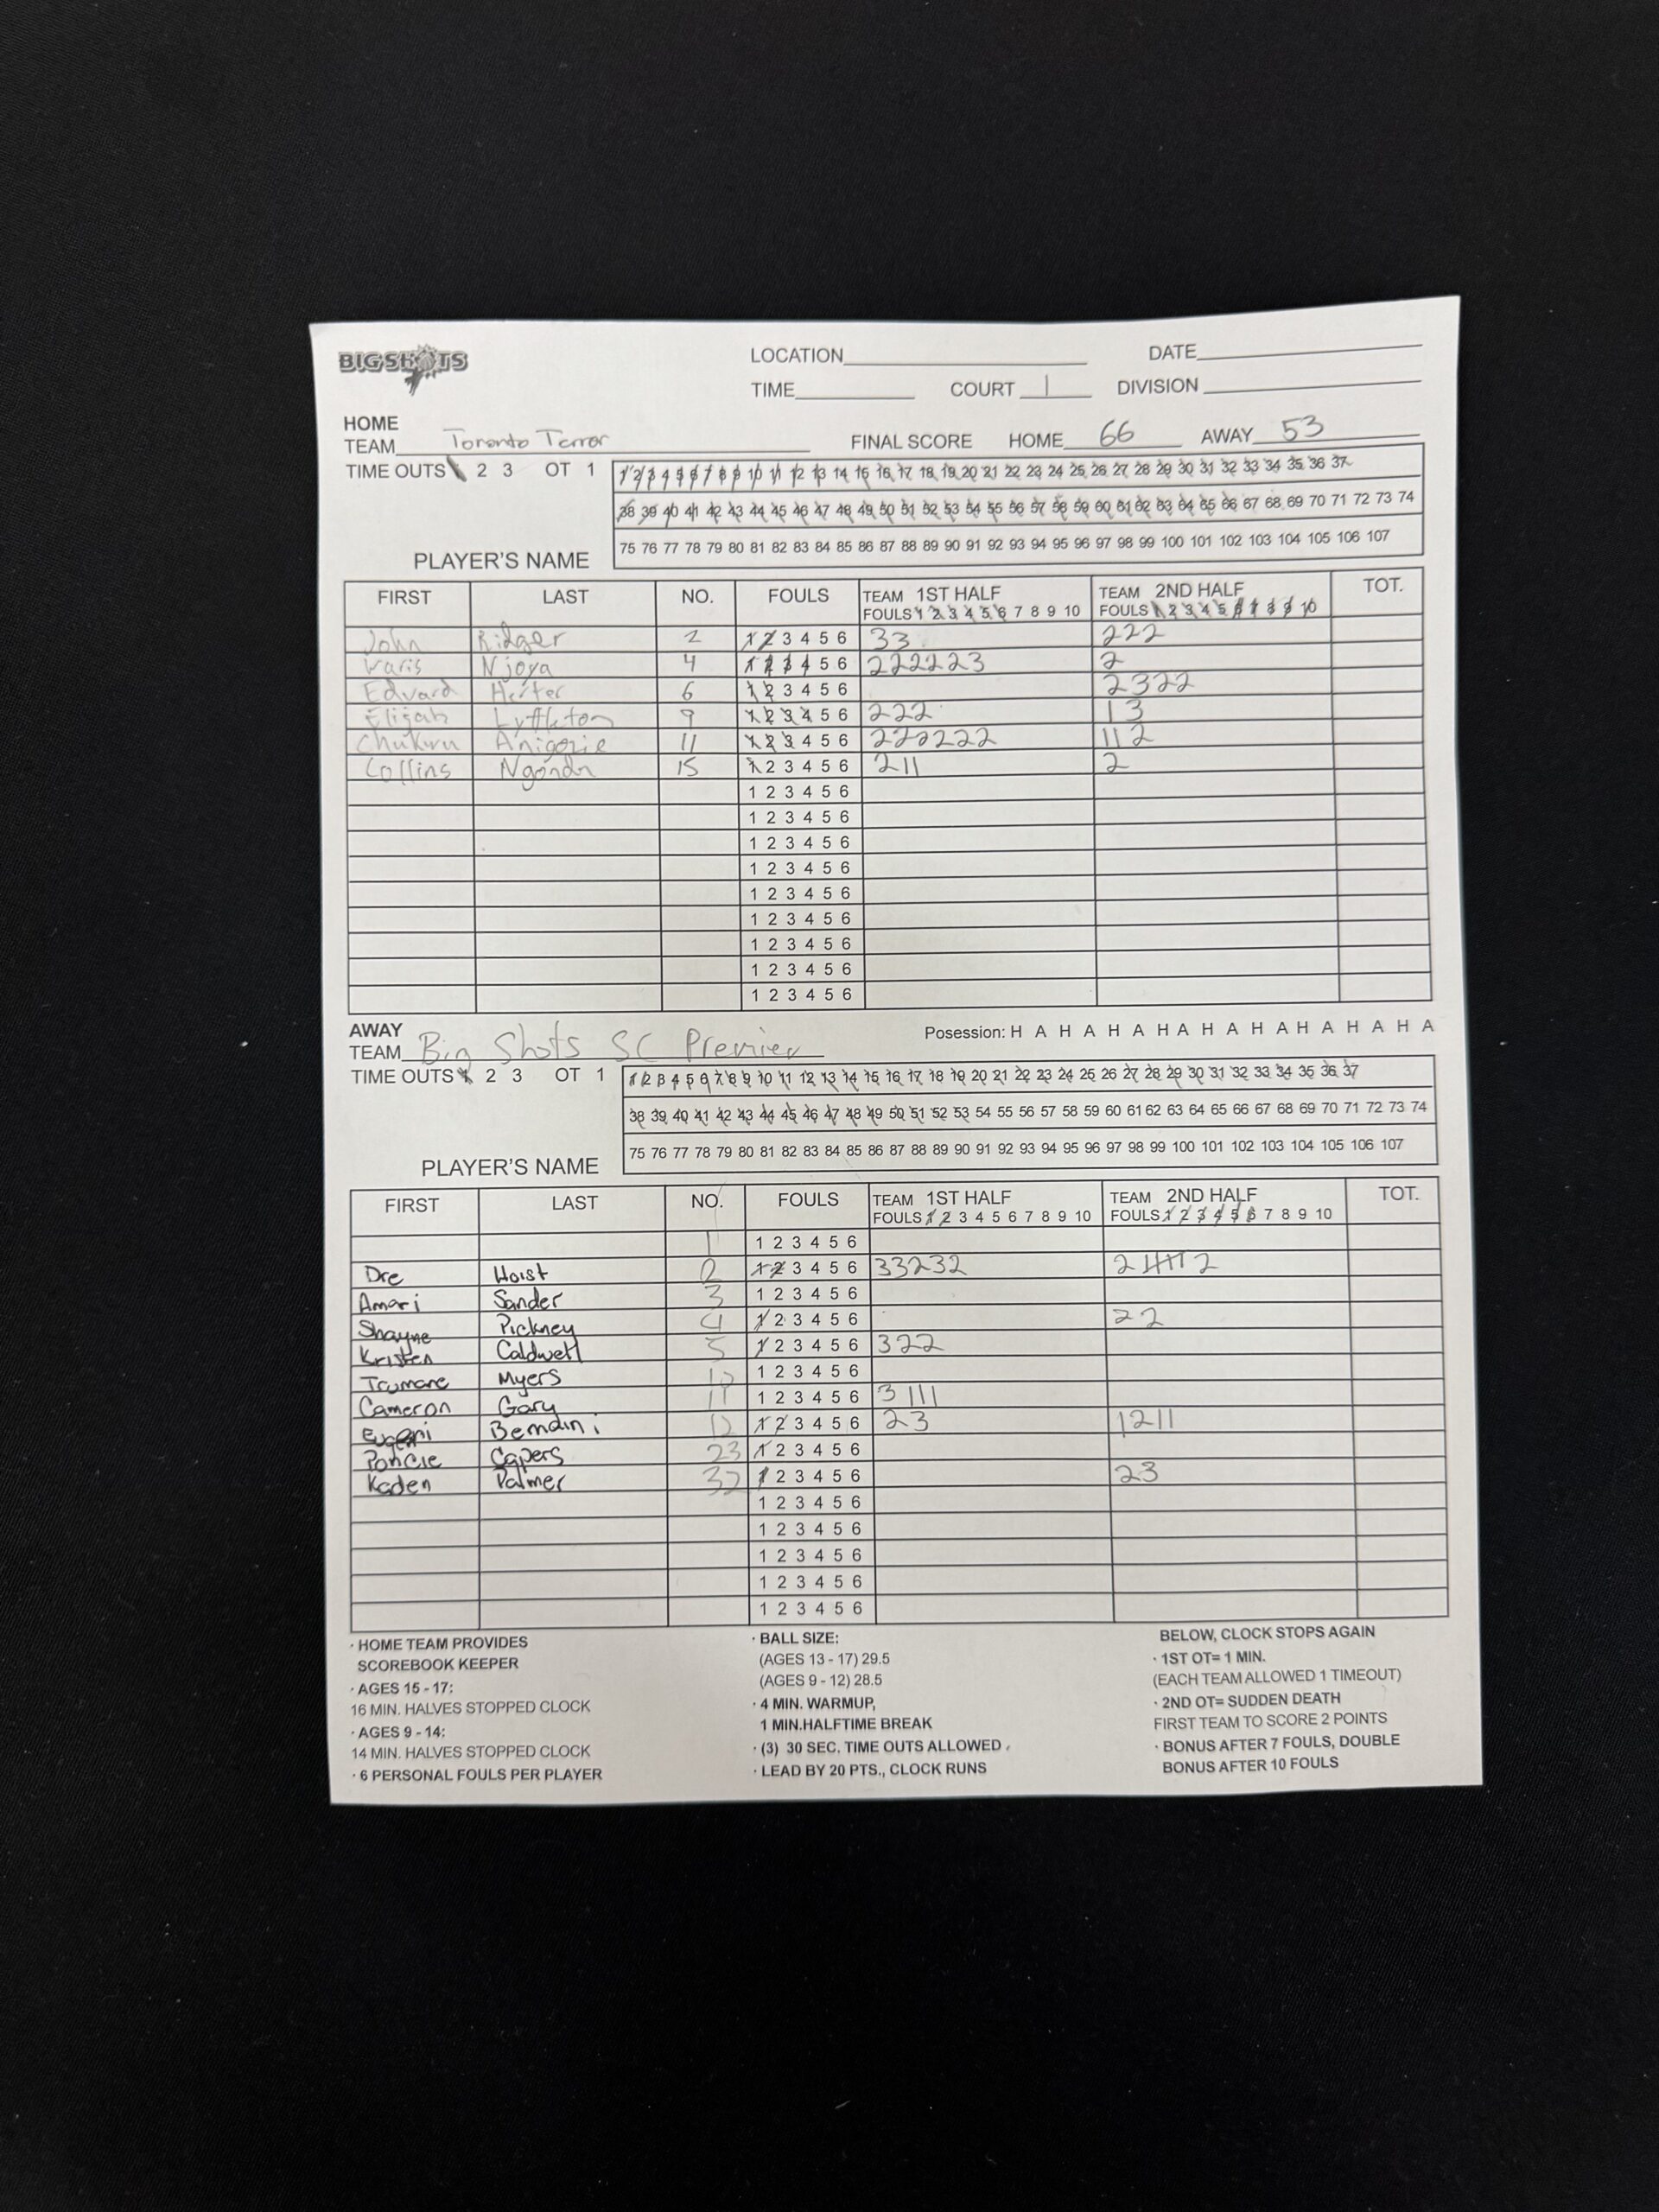 BIG SHOTS
LOCATION DATE
TIME COURT 1 DIVISION
HOME
TEAM Toronto Terror FINAL SCORE HOME 66 AWAY 53
TIME OUTS 1 2 3 OT 1 1 2 3 4 5 6 7 8 9 10 11 12 13 14 15 16 17 18 19 20 21 22 23 24 25 26 27 28 29 30 31 32 33 34 35 36 37
38 39 40 41 42 43 44 45 46 47 48 49 50 51 52 53 54 55 56 57 58 59 60 61 62 63 64 65 66 67 68 69 70 71 72 73 74
75 76 77 78 79 80 81 82 83 84 85 86 87 88 89 90 91 92 93 94 95 96 97 98 99 100 101 102 103 104 105 106 107
PLAYER'S NAME
FIRST LAST NO. FOULS TEAM 1ST HALF TEAM 2ND HALF TOT.
FOULS 1 2 3 4 5 6 7 8 9 10 FOULS 1 2 3 4 5 6 7 8 9 10
John Ridger 2 1 2 3 4 5 6 33 222
Waris Njoya 4 1 2 3 4 5 6 222223 2
Edvard 6 1 2 3 4 5 6 2322
Elijah Lyttleton 9 1 2 3 4 5 6 222 13
Chukwu Anigozie 11 1 2 3 4 5 6 222222 112
Collins 15 1 2 3 4 5 6 211 2
1 2 3 4 5 6
1 2 3 4 5 6
1 2 3 4 5 6
1 2 3 4 5 6
1 2 3 4 5 6
1 2 3 4 5 6
1 2 3 4 5 6
1 2 3 4 5 6
1 2 3 4 5 6
AWAY
TEAM Big Shots SC Premier Posession: H A H A H A H A H A H A H A H A H A
TIME OUTS 1 2 3 OT 1 1 2 3 4 5 6 7 8 9 10 11 12 13 14 15 16 17 18 19 20 21 22 23 24 25 26 27 28 29 30 31 32 33 34 35 36 37
38 39 40 41 42 43 44 45 46 47 48 49 50 51 52 53 54 55 56 57 58 59 60 61 62 63 64 65 66 67 68 69 70 71 72 73 74
75 76 77 78 79 80 81 82 83 84 85 86 87 88 89 90 91 92 93 94 95 96 97 98 99 100 101 102 103 104 105 106 107
PLAYER'S NAME
FIRST LAST NO. FOULS TEAM 1ST HALF TEAM 2ND HALF TOT.
FOULS 1 2 3 4 5 6 7 8 9 10 FOULS 1 2 3 4 5 6 7 8 9 10
1 1 2 3 4 5 6
Dre Hoist 2 1 2 3 4 5 6 33232
Amari Sander 3 1 2 3 4 5 6
Shayne Pickney 4 1 2 3 4 5 6 22
Kristen Caldwell 5 1 2 3 4 5 6 322
Trumane Myers 10 1 2 3 4 5 6
Cameron Gary 11 1 2 3 4 5 6 3111
Bemdini 12 1 2 3 4 5 6 23 1211
Capers 23 1 2 3 4 5 6
Kaden Palmer 32 1 2 3 4 5 6 23
1 2 3 4 5 6
1 2 3 4 5 6
1 2 3 4 5 6
1 2 3 4 5 6
1 2 3 4 5 6
· HOME TEAM PROVIDES
SCOREBOOK KEEPER
· AGES 15 - 17:
16 MIN. HALVES STOPPED CLOCK
· AGES 9 - 14:
14 MIN. HALVES STOPPED CLOCK
· 6 PERSONAL FOULS PER PLAYER
· BALL SIZE:
(AGES 13 - 17) 29.5
(AGES 9 - 12) 28.5
· 4 MIN. WARMUP,
1 MIN.HALFTIME BREAK
· (3) 30 SEC. TIME OUTS ALLOWED
· LEAD BY 20 PTS., CLOCK RUNS
BELOW, CLOCK STOPS AGAIN
· 1ST OT= 1 MIN.
(EACH TEAM ALLOWED 1 TIMEOUT)
· 2ND OT= SUDDEN DEATH
FIRST TEAM TO SCORE 2 POINTS
· BONUS AFTER 7 FOULS, DOUBLE
BONUS AFTER 10 FOULS